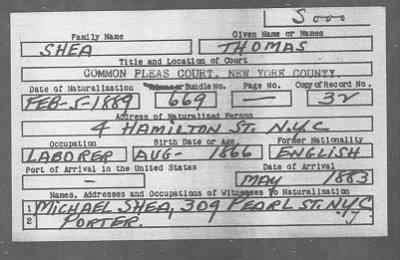 S000
Family Name Given Name or Names
SHEA THOMAS
Title and Location of Court
COMMON PLEAS COURT, NEW YORK COUNTY
Date of Naturalization Bundle No. Page No. Copy of Record No.
FEB-5-1889 669 — 32
Address of Naturalized Person
4 HAMILTON ST. N.Y.C
Occupation Birth Date or Age. Former Nationality
LABORER AUG- 1866 ENGLISH
Port of Arrival in the United States Date of Arrival
- MAY 1883
Names, Addresses and Occupations of Witnesses To Naturalization
1 MICHAEL SHEA, 309 PEARL ST. NYC
2 PORTER.